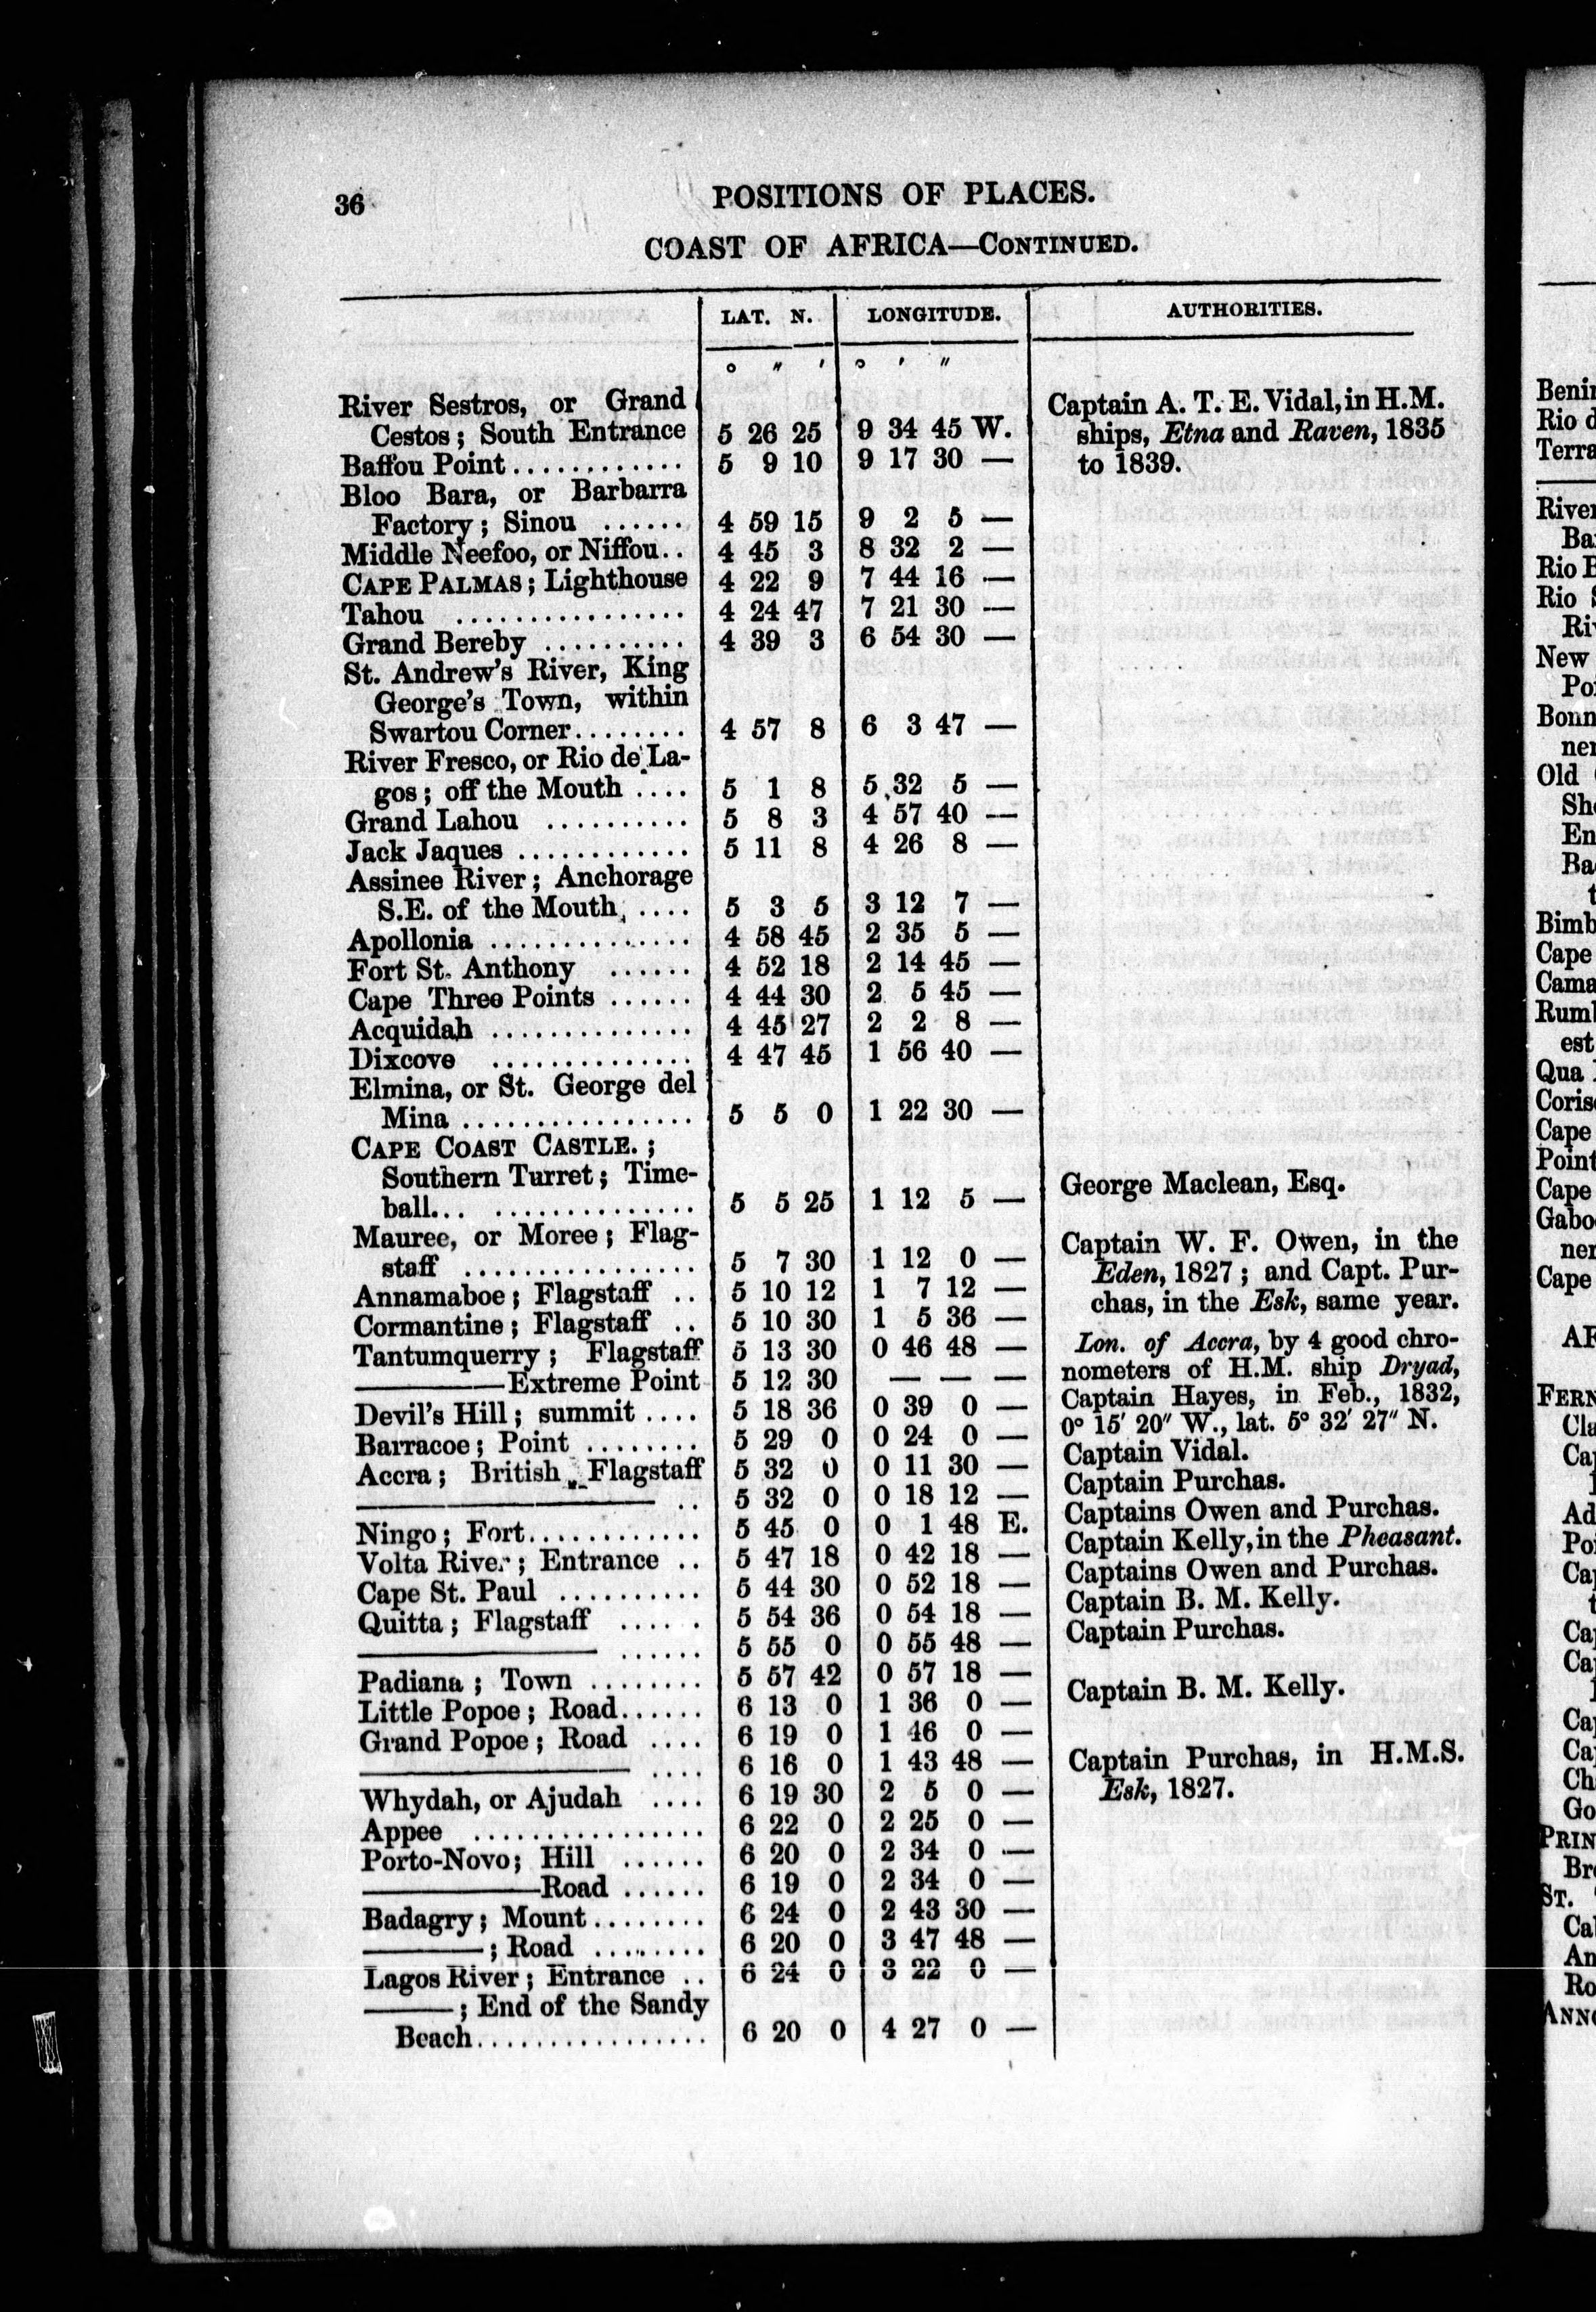 36 POSITIONS OF PLACES.
COAST OF AFRICA—CONTINUED.
LAT. N. LONGITUDE. AUTHORITIES.
° ″ ′ ° ′ ″
River Sestros, or Grand Captain A. T. E. Vidal, in H.M.
Cestos; South Entrance 5 26 25 9 34 45 W. ships, Etna and Raven, 1835
Baffou Point............ 5 9 10 9 17 30 — to 1839.
Bloo Bara, or Barbarra
Factory; Sinou ...... 4 59 15 9 2 5 —
Middle Neefoo, or Niffou.. 4 45 3 8 32 2 —
CAPE PALMAS; Lighthouse 4 22 9 7 44 16 —
Tahou ................ 4 24 47 7 21 30 —
Grand Bereby .......... 4 39 3 6 54 30 —
St. Andrew's River, King
George's Town, within
Swartou Corner........ 4 57 8 6 3 47 —
River Fresco, or Rio de La-
gos; off the Mouth .... 5 1 8 5 32 5 —
Grand Lahou .......... 5 8 3 4 57 40 —
Jack Jaques ............ 5 11 8 4 26 8 —
Assinee River; Anchorage
S.E. of the Mouth, .... 5 3 5 3 12 7 —
Apollonia .............. 4 58 45 2 35 5 —
Fort St. Anthony ...... 4 52 18 2 14 45 —
Cape Three Points ...... 4 44 30 2 5 45 —
Acquidah .............. 4 45 27 2 2 8 —
Dixcove .............. 4 47 45 1 56 40 —
Elmina, or St. George del
Mina ................ 5 5 0 1 22 30 —
CAPE COAST CASTLE.;
Southern Turret; Time- George Maclean, Esq.
ball... .............. 5 5 25 1 12 5 —
Mauree, or Moree; Flag- Captain W. F. Owen, in the
staff ................ 5 7 30 1 12 0 — Eden, 1827; and Capt. Pur-
Annamaboe; Flagstaff .. 5 10 12 1 7 12 — chas, in the Esk, same year.
Cormantine; Flagstaff .. 5 10 30 1 5 36 —
Tantumquerry; Flagstaff 5 13 30 0 46 48 — Lon. of Accra, by 4 good chro-
———Extreme Point 5 12 30 — — — nometers of H.M. ship Dryad,
Devil's Hill; summit.... 5 18 36 0 39 0 — Captain Hayes, in Feb., 1832,
Barracoe; Point ........ 5 29 0 0 24 0 — 0° 15′ 20″ W., lat. 5° 32′ 27″ N.
Accra; British Flagstaff 5 32 0 0 11 30 — Captain Vidal.
——— .. 5 32 0 0 18 12 — Captain Purchas.
Ningo; Fort............ 5 45 0 0 1 48 E. Captains Owen and Purchas.
Volta River; Entrance .. 5 47 18 0 42 18 — Captain Kelly, in the Pheasant.
Cape St. Paul .......... 5 44 30 0 52 18 — Captains Owen and Purchas.
Quitta; Flagstaff ...... 5 54 36 0 54 18 — Captain B. M. Kelly.
——— ...... 5 55 0 0 55 48 — Captain Purchas.
Padiana; Town ........ 5 57 42 0 57 18 —
Little Popoe; Road...... 6 13 0 1 36 0 — Captain B. M. Kelly.
Grand Popoe; Road .... 6 19 0 1 46 0 —
——— .... 6 16 0 1 43 48 — Captain Purchas, in H.M.S.
Whydah, or Ajudah .... 6 19 30 2 5 0 — Esk, 1827.
Appee ................ 6 22 0 2 25 0 —
Porto-Novo; Hill ...... 6 20 0 2 34 0 —
———Road ...... 6 19 0 2 34 0 —
Badagry; Mount........ 6 24 0 2 43 30 —
———; Road ........ 6 20 0 3 47 48 —
Lagos River; Entrance .. 6 24 0 3 22 0 —
———; End of the Sandy
Beach................ 6 20 0 4 27 0 —